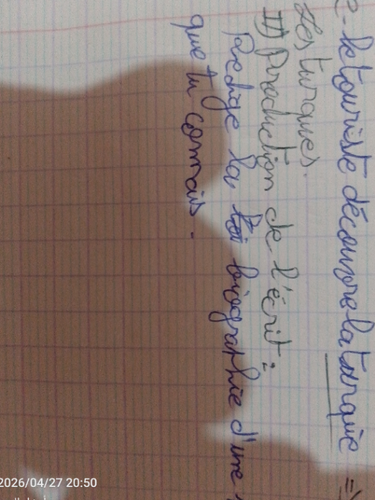 e - le touriste découvre la turquie =>
Les turques.
II) Production de l'écrit :
Rédige la biographie d'une
que tu connais.
2026/04/27 20:50